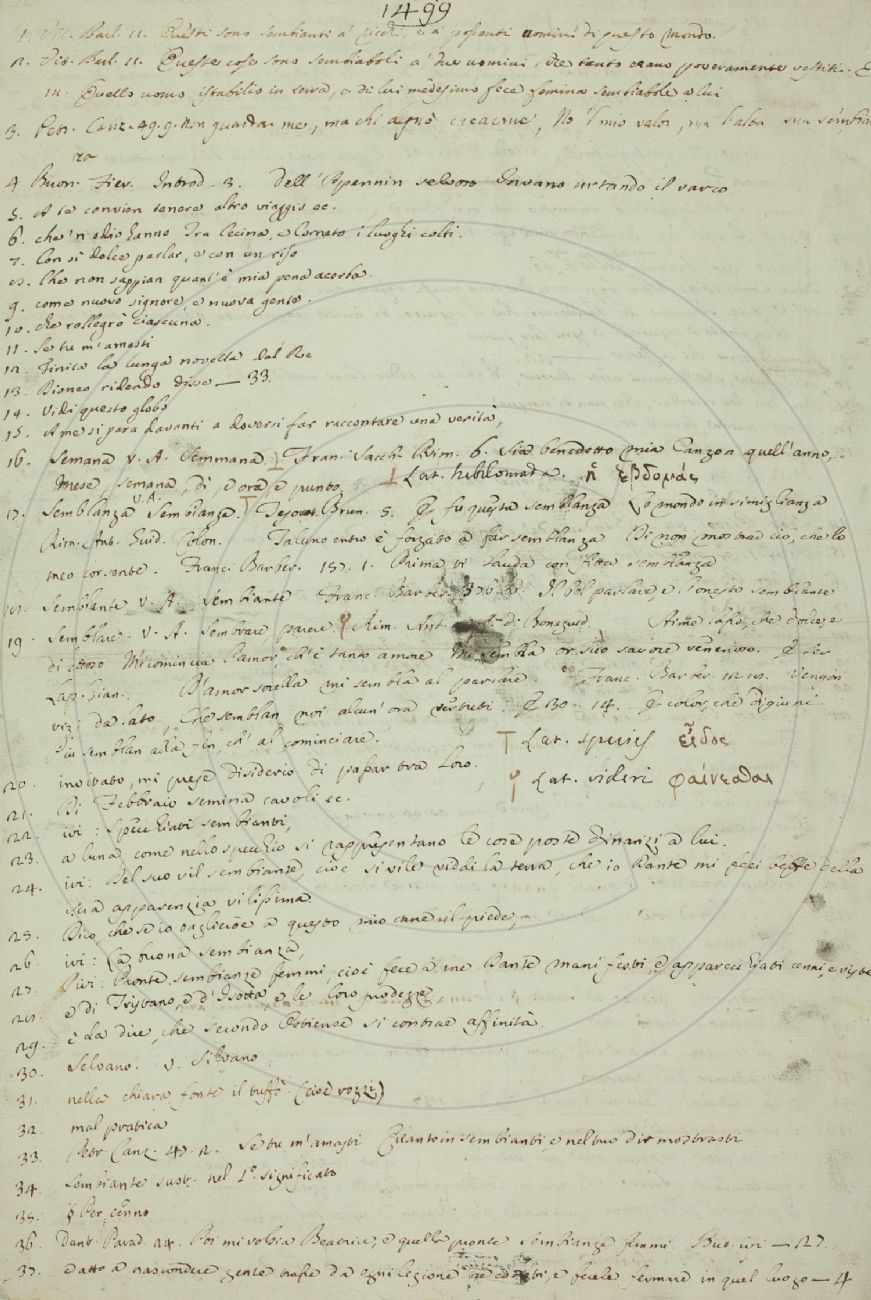 1499
1. Vit. Barl. 11. Questi sono sembianti a' ricchi, e a' possenti uomini di questo mondo.
2. Vit. Barl. 11. Queste cose sono sembiaboli a' due uomini, che tanto erano poveramente vestiti. E
in. Quello uomo istabilio in terra, e di lui medesimo fece femina sembiabile a lui
3. Petr. Canz. 49. 9. Non guardar me, ma chi degnò crearme, No 'l mio valor, ma l'alta sua sembian
za
4 Buon. Fier. Introd. 3. Dell' Apennin selvoso Invano urtando il varco
5. A te convien tenere altro viaggio ec.
6. che 'n odio hanno Tra Cecina, e Corneto i luoghi colti.
7. Con sì dolce parlar, e con un riso
8. Che non sappian quant' è mia pena acerba.
9. come nuovo signore, e nuova gente.
10. che rallegrò ciascuna.
11. Se tu m'amasti
12. Finita la lunga novella del Re
13. Dioneo ridendo disse — 33.
14. Vidi questo globo
15. A me si para davanti a doversi far raccontare una verità,
16. Semana v. A. Semmana. Fran. Sacch. Rim. 6. Sia benedetto mia Canzon quell' anno,
Mese, semana, dì, e ora, e punto. Lat. hebdomada. ἡ ἑβδομάς
17. Semblanza v. A. Sembianza. Tesoret. Brun. 5. E fu questa semblanza Lo mondo in simiglianza
Rim. Ant. Guid. Colon. Taluno entro è forzato a far semblanza Di non mostrar ciò, che lo
meo cor sente. Franc. Barber. 157. 1. Prima vi lauda con fitta semblanza
18. Semblante v. A. Sembiante Franc. Barber. Il bel parlare, e l'onesto semblante
19. Semblare. v. A. Sembrare parere. Rim. Ant. Bonagiud. Aimè lasso, che dolce, e
di Amor, ch'è tanto amore Mi sembla or sico savore venenoso. E Ser
Lap. Gian. D'amor sorella mi sembla al parlare. Franc. Barber. Vengon
vizj da lato, Che semblan noi alcun' ora vertuti E 130. 14. E color, che digiuni
Più semblan alla fin, ch' al cominciare. Lat. species εἶδος
20. invitato, mi prese disiderio di passar tra loro. Lat. videri φαίνεσθαι
21. Di Febbraio semina cavoli ec.
22. ivi: Specchiati sembianti,
23. a luna, come nello specchio si rappresentano le cose poste dinanzi a lui.
24. ivi: Del suo vil sembiante, cioè sì vile viddi la terra, che io Dante mi feci beffe della
sua apparenzia vilissima.
25. Dico, che se io tagliasse a questo mio cane il piede,
26. ivi: La buona sembianza,
27. ivi: Pronte sembianze femmi, cioè fece a me Dante manifesti, e apparecchiati cenni, e viste
28. e di Tristano, e d'Isotta, e le loro prodezze,
29. è da dire, che secondo Ostiense si contrae affinità.
30. Selvano. v. Silvano
31. nella chiara fonte il tuffò. (cioè rozzi)
32. mal pratica
33. Petr. Canz. 48. 2. Se tu m'amasti Quanto in sembianti, e nel tuo dir mostrasti
34. Sembiante sust. nel 1°. significato
35. Per cenno
36. Dant. Parad. 24. Poi mi volsi a Beatrice, e quella pronte Sembianze femmi. But. ivi — 27.
37. e atto a nascondere gente trasse da ogni legione e fecele fermare in quel luogo — 4